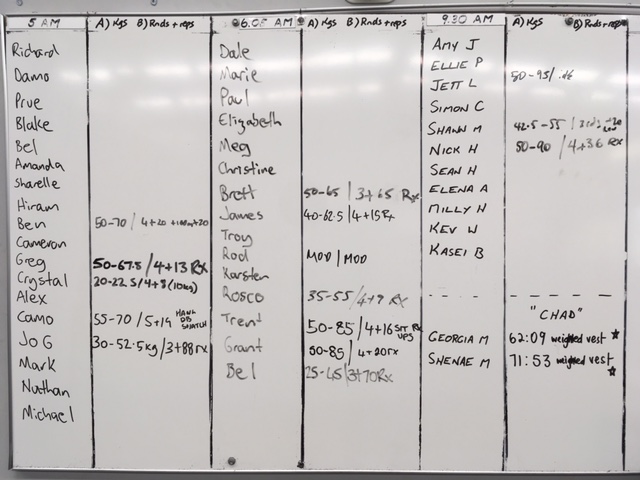 5 AM A) Kgs B) Rnds + reps
Richard
Damo
Prue
Blake
Bel
Amanda
Sharelle
Hiram
Ben 50-70 / 4+20 +100m+20
Cameron
Greg 50-67.5 / 4+13 Rx
Crystal 20-22.5/4+8 (10kg)
Alex
Camo 55-70 / 5+14 HANG DB SNATCH
Jo G 30-52.5kg / 3+88 rx
Mark
Nathan
Michael
6.05 AM A) Kgs B) Rnds + reps
Dale
Marie
Paul
Elizabeth
Meg
Christine
Brett 50-65 / 3+65 Rx
James 40-62.5 / 4+15 Rx
Troy
Rod MOD / MOD
Karsten
Rosco 35-55 / 4+9 RX
Trent 50-85 / 4+16 SIT UPS RX
Grant 50-85 / 4+20rx
Bel 25-45 / 3+70 Rx
9.30 AM A) Kgs B) Rnds + reps
AMY J
ELLIE P
JETT L 50-95/
SIMON C
SHAWN M 42.5-55 /
NICK H 50-90 / 4+36 Rx
SEAN H
ELENA A
MILLY H
KEV W
KASEI B
"CHAD"
GEORGIA M 62:09 weighted vest
SHENAE M 71:53 weighted vest